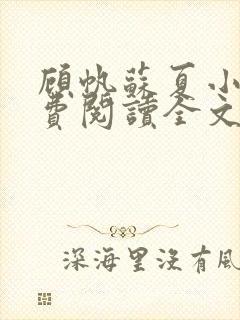 顧帆蘇夏小
費閱讀全文
深海里沒有風